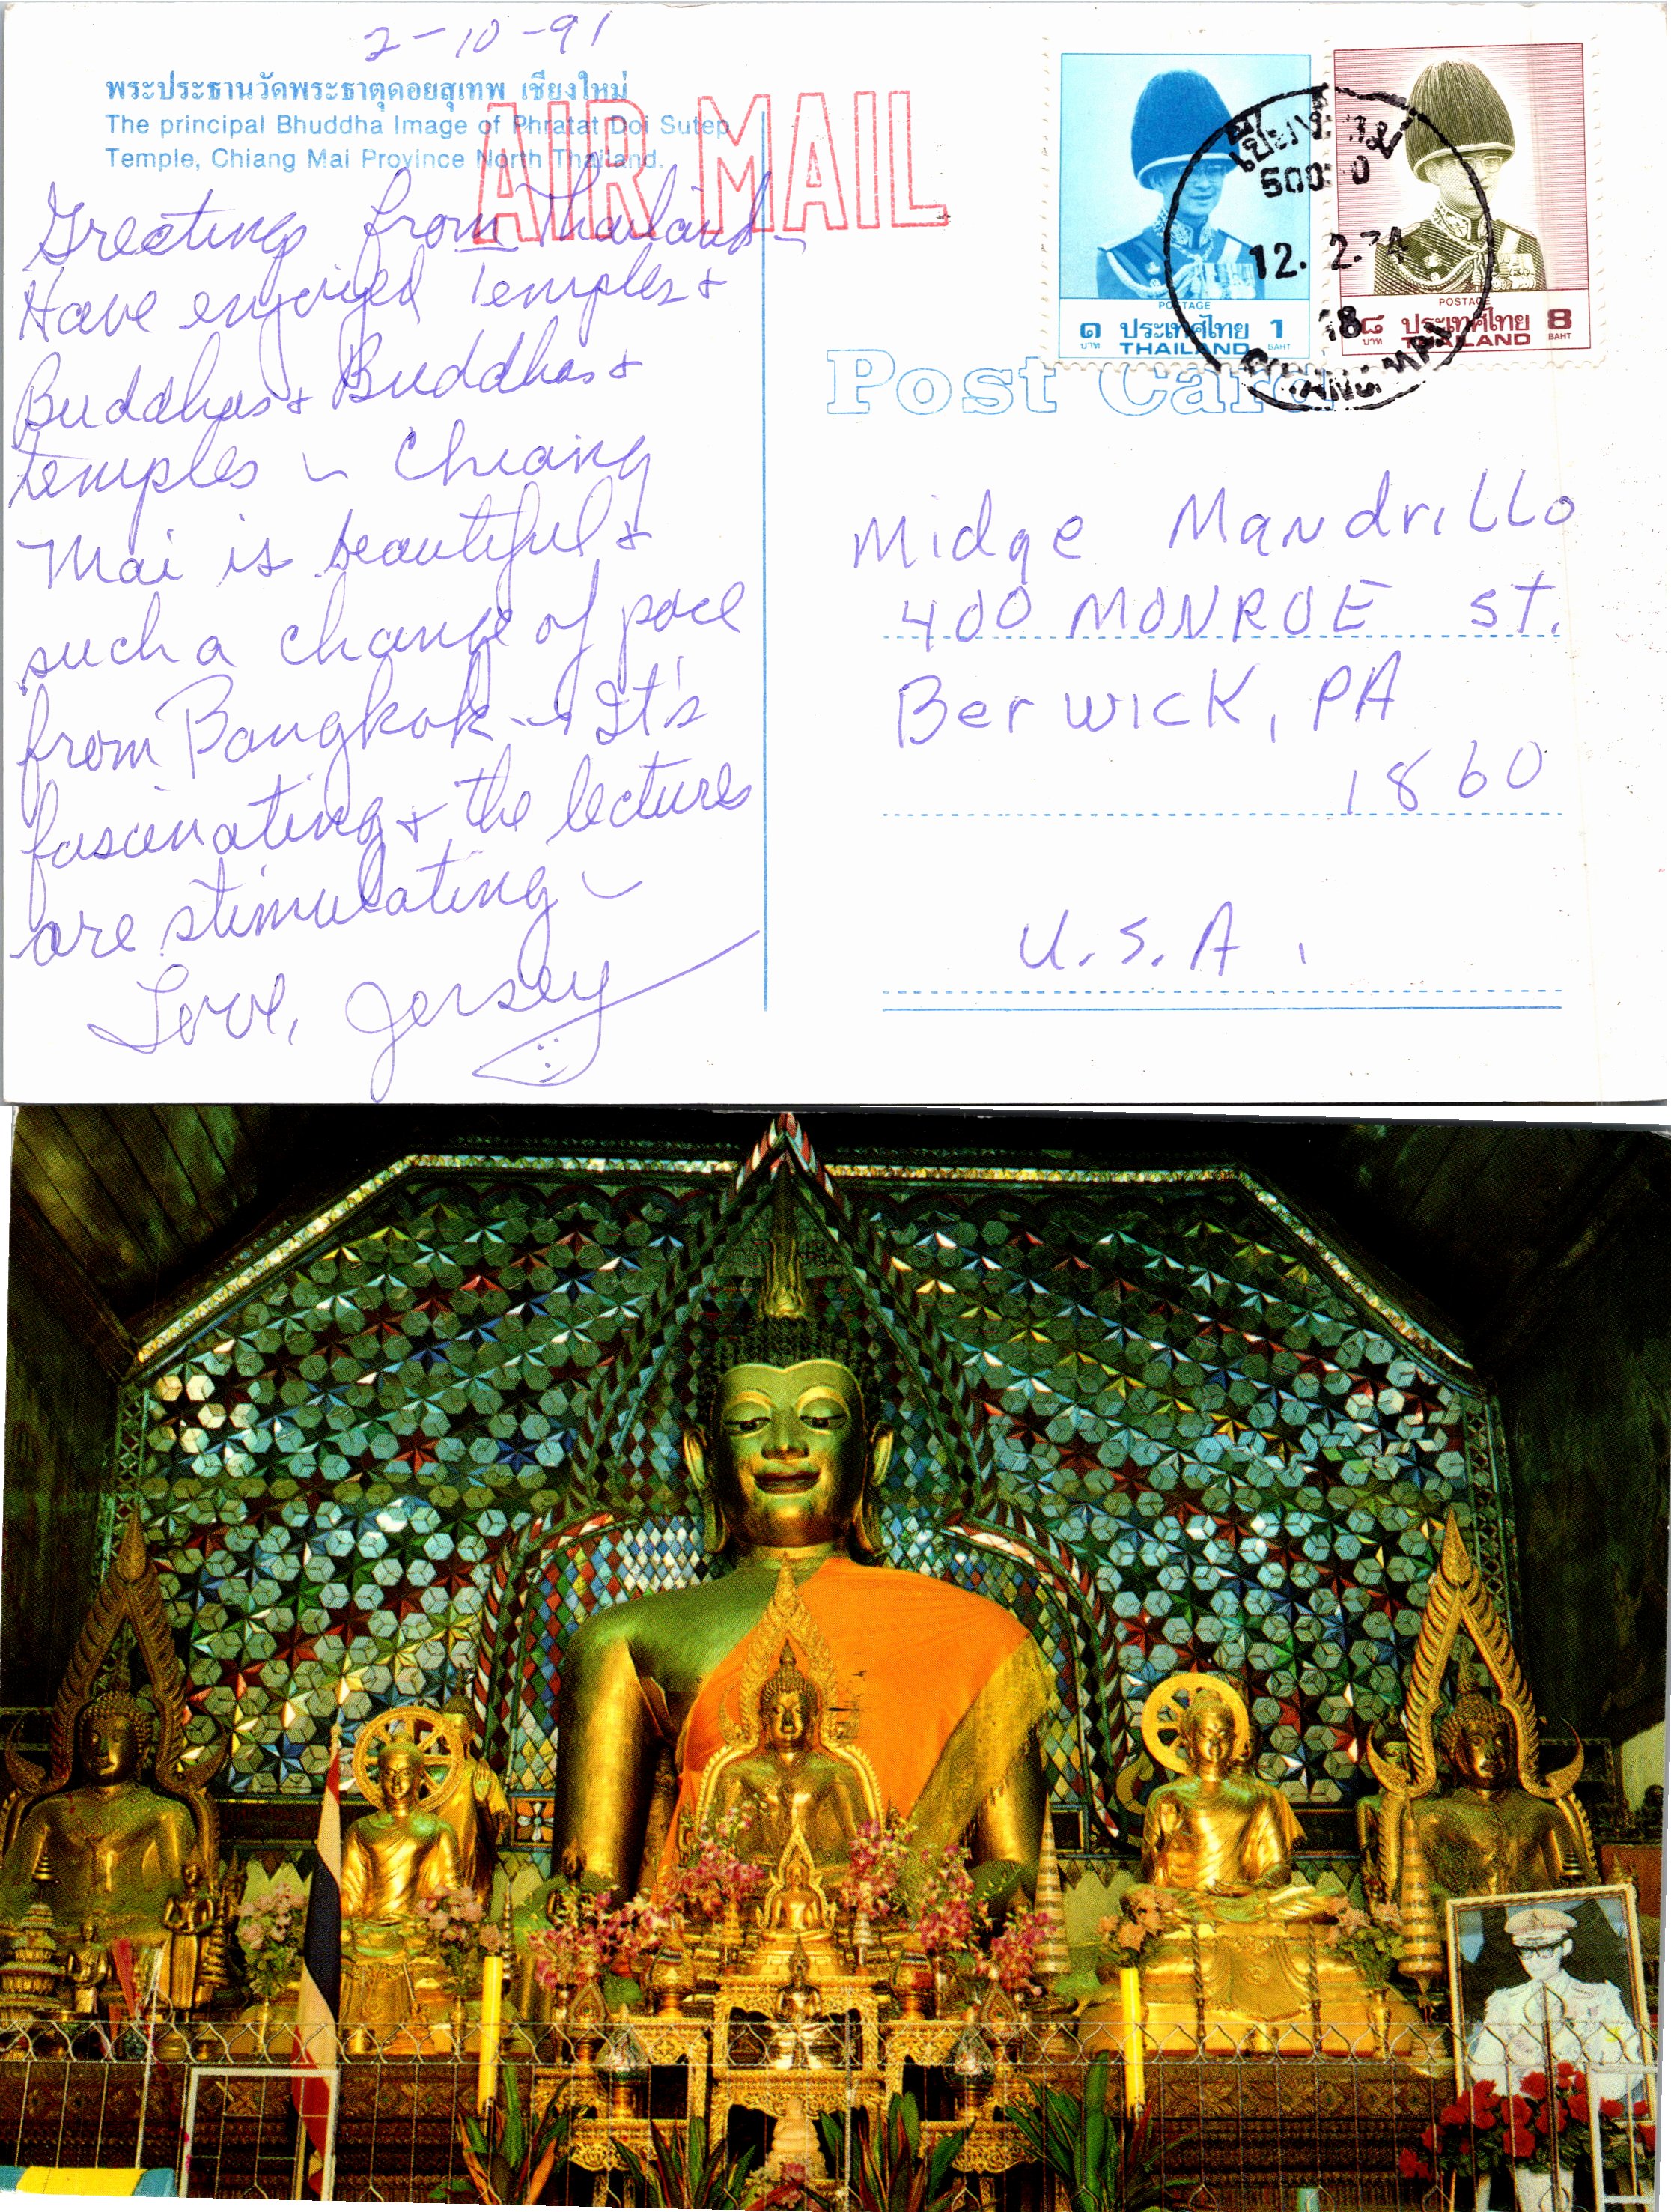 2-10-91
พระประธานวัดพระธาตุดอยสุเทพ เชียงใหม่
The principal Bhuddha Image of Phratat Doi Sutep
Temple, Chiang Mai Province North Thailand.
AIR MAIL
Greetings from Thailand-
Have enjoyed Temples &
Buddhas & Buddhas &
temples ~ Chiang
Mai is beautiful &
such a change of pace
from Bangkok - It's
fascinating & the lectures
are stimulating ~
Love, Jersey
POSTAGE
๑ ประเทศไทย 1
บาท THAILAND BAHT
POSTAGE
๘ ประเทศไทย 8
บาท THAILAND BAHT
12. 2. 34
18
Post Card
Midge Mandrillo
400 MONROE St.
Berwick, PA
1860
U.S.A.